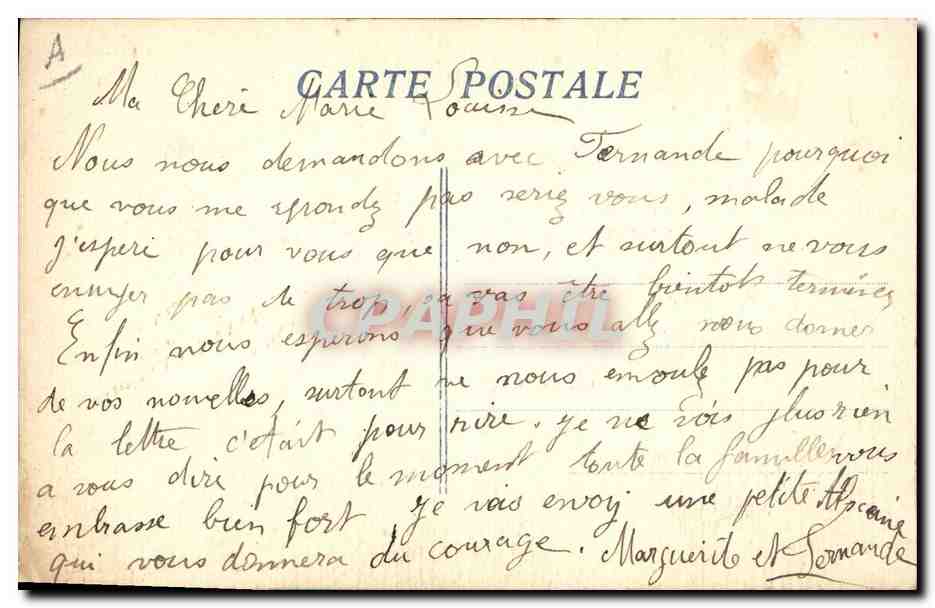 A
CARTE POSTALE
Ma Cheri Marie Louisse
Nous nous demandons avec Fernande pourquoi
que vous me repondez pas seriez vous, malade
j'esperè pour vous que non, et surtout ne vous
ennuyer pas de trop, sa vas être bientot terminez
Enfin nous esperons que vous allez nous donner
de vos nouvelles, surtout ne nous en voulez pas pour
la lettre c'etait pour rire. Je ne vois plus rien
a vous dire pour le moment toute la famille vous
enbrasse bien fort Je vais envoy une petite
qui vous donnera du courage. Marguerite et Fernande
CPAPHIL